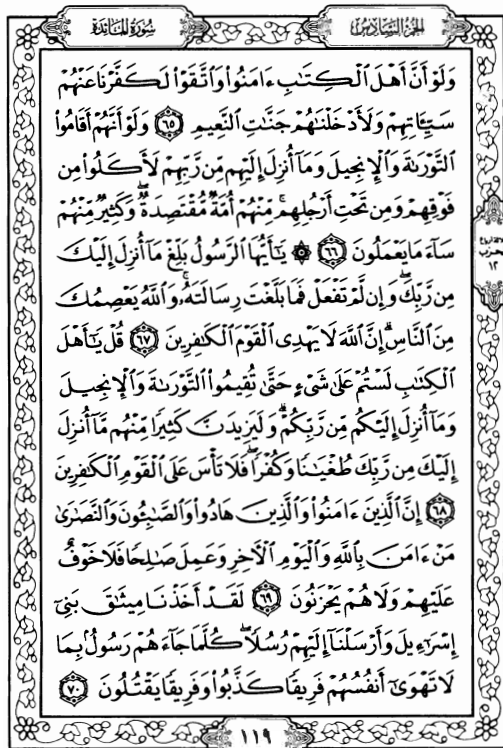 الجزء السادس
سورة المائدة
وَلَوْ أَنَّ أَهْلَ ٱلْكِتَٰبِ ءَامَنُوا۟ وَٱتَّقَوْا۟ لَكَفَّرْنَا عَنْهُمْ
سَيِّـَٔاتِهِمْ وَلَأَدْخَلْنَٰهُمْ جَنَّٰتِ ٱلنَّعِيمِ ٦٥ وَلَوْ أَنَّهُمْ أَقَامُوا۟
ٱلتَّوْرَىٰةَ وَٱلْإِنجِيلَ وَمَآ أُنزِلَ إِلَيْهِم مِّن رَّبِّهِمْ لَأَكَلُوا۟ مِن
فَوْقِهِمْ وَمِن تَحْتِ أَرْجُلِهِم ۚ مِّنْهُمْ أُمَّةٌ مُّقْتَصِدَةٌ ۖ وَكَثِيرٌ مِّنْهُمْ
سَآءَ مَا يَعْمَلُونَ ٦٦ ۞ يَٰٓأَيُّهَا ٱلرَّسُولُ بَلِّغْ مَآ أُنزِلَ إِلَيْكَ
مِن رَّبِّكَ ۖ وَإِن لَّمْ تَفْعَلْ فَمَا بَلَّغْتَ رِسَالَتَهُۥ ۚ وَٱللَّهُ يَعْصِمُكَ
مِنَ ٱلنَّاسِ ۗ إِنَّ ٱللَّهَ لَا يَهْدِى ٱلْقَوْمَ ٱلْكَٰفِرِينَ ٦٧ قُلْ يَٰٓأَهْلَ
ٱلْكِتَٰبِ لَسْتُمْ عَلَىٰ شَىْءٍ حَتَّىٰ تُقِيمُوا۟ ٱلتَّوْرَىٰةَ وَٱلْإِنجِيلَ
وَمَآ أُنزِلَ إِلَيْكُم مِّن رَّبِّكُمْ ۗ وَلَيَزِيدَنَّ كَثِيرًا مِّنْهُم مَّآ أُنزِلَ
إِلَيْكَ مِن رَّبِّكَ طُغْيَٰنًا وَكُفْرًا ۖ فَلَا تَأْسَ عَلَى ٱلْقَوْمِ ٱلْكَٰفِرِينَ
٦٨ إِنَّ ٱلَّذِينَ ءَامَنُوا۟ وَٱلَّذِينَ هَادُوا۟ وَٱلصَّٰبِـُٔونَ وَٱلنَّصَٰرَىٰ
مَنْ ءَامَنَ بِٱللَّهِ وَٱلْيَوْمِ ٱلْءَاخِرِ وَعَمِلَ صَٰلِحًا فَلَا خَوْفٌ
عَلَيْهِمْ وَلَا هُمْ يَحْزَنُونَ ٦٩ لَقَدْ أَخَذْنَا مِيثَٰقَ بَنِىٓ
إِسْرَٰٓءِيلَ وَأَرْسَلْنَآ إِلَيْهِمْ رُسُلًا ۖ كُلَّمَا جَآءَهُمْ رَسُولٌۢ بِمَا
لَا تَهْوَىٰٓ أَنفُسُهُمْ فَرِيقًا كَذَّبُوا۟ وَفَرِيقًا يَقْتُلُونَ ٧٠
١١٩